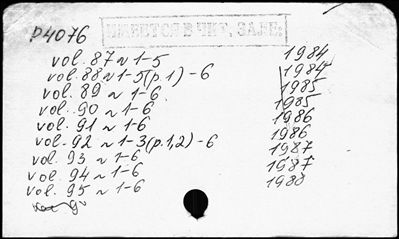 P4076 ИМЕЕТСЯ В ЧИТ. ЗАЛЕ
vol. 87 ~ 1-5 1984
vol. 88 ~ 1-5(p.1) - 6 1984
vol. 89 ~ 1-6 1985
vol. 90 ~ 1-6 1985
vol. 91 ~ 1-6 1986
vol. 92 ~ 1-3(p.1,2) - 6 1986
vol. 93 ~ 1-6 1987
vol. 94 ~ 1-6 1987
vol. 95 ~ 1-6 1988